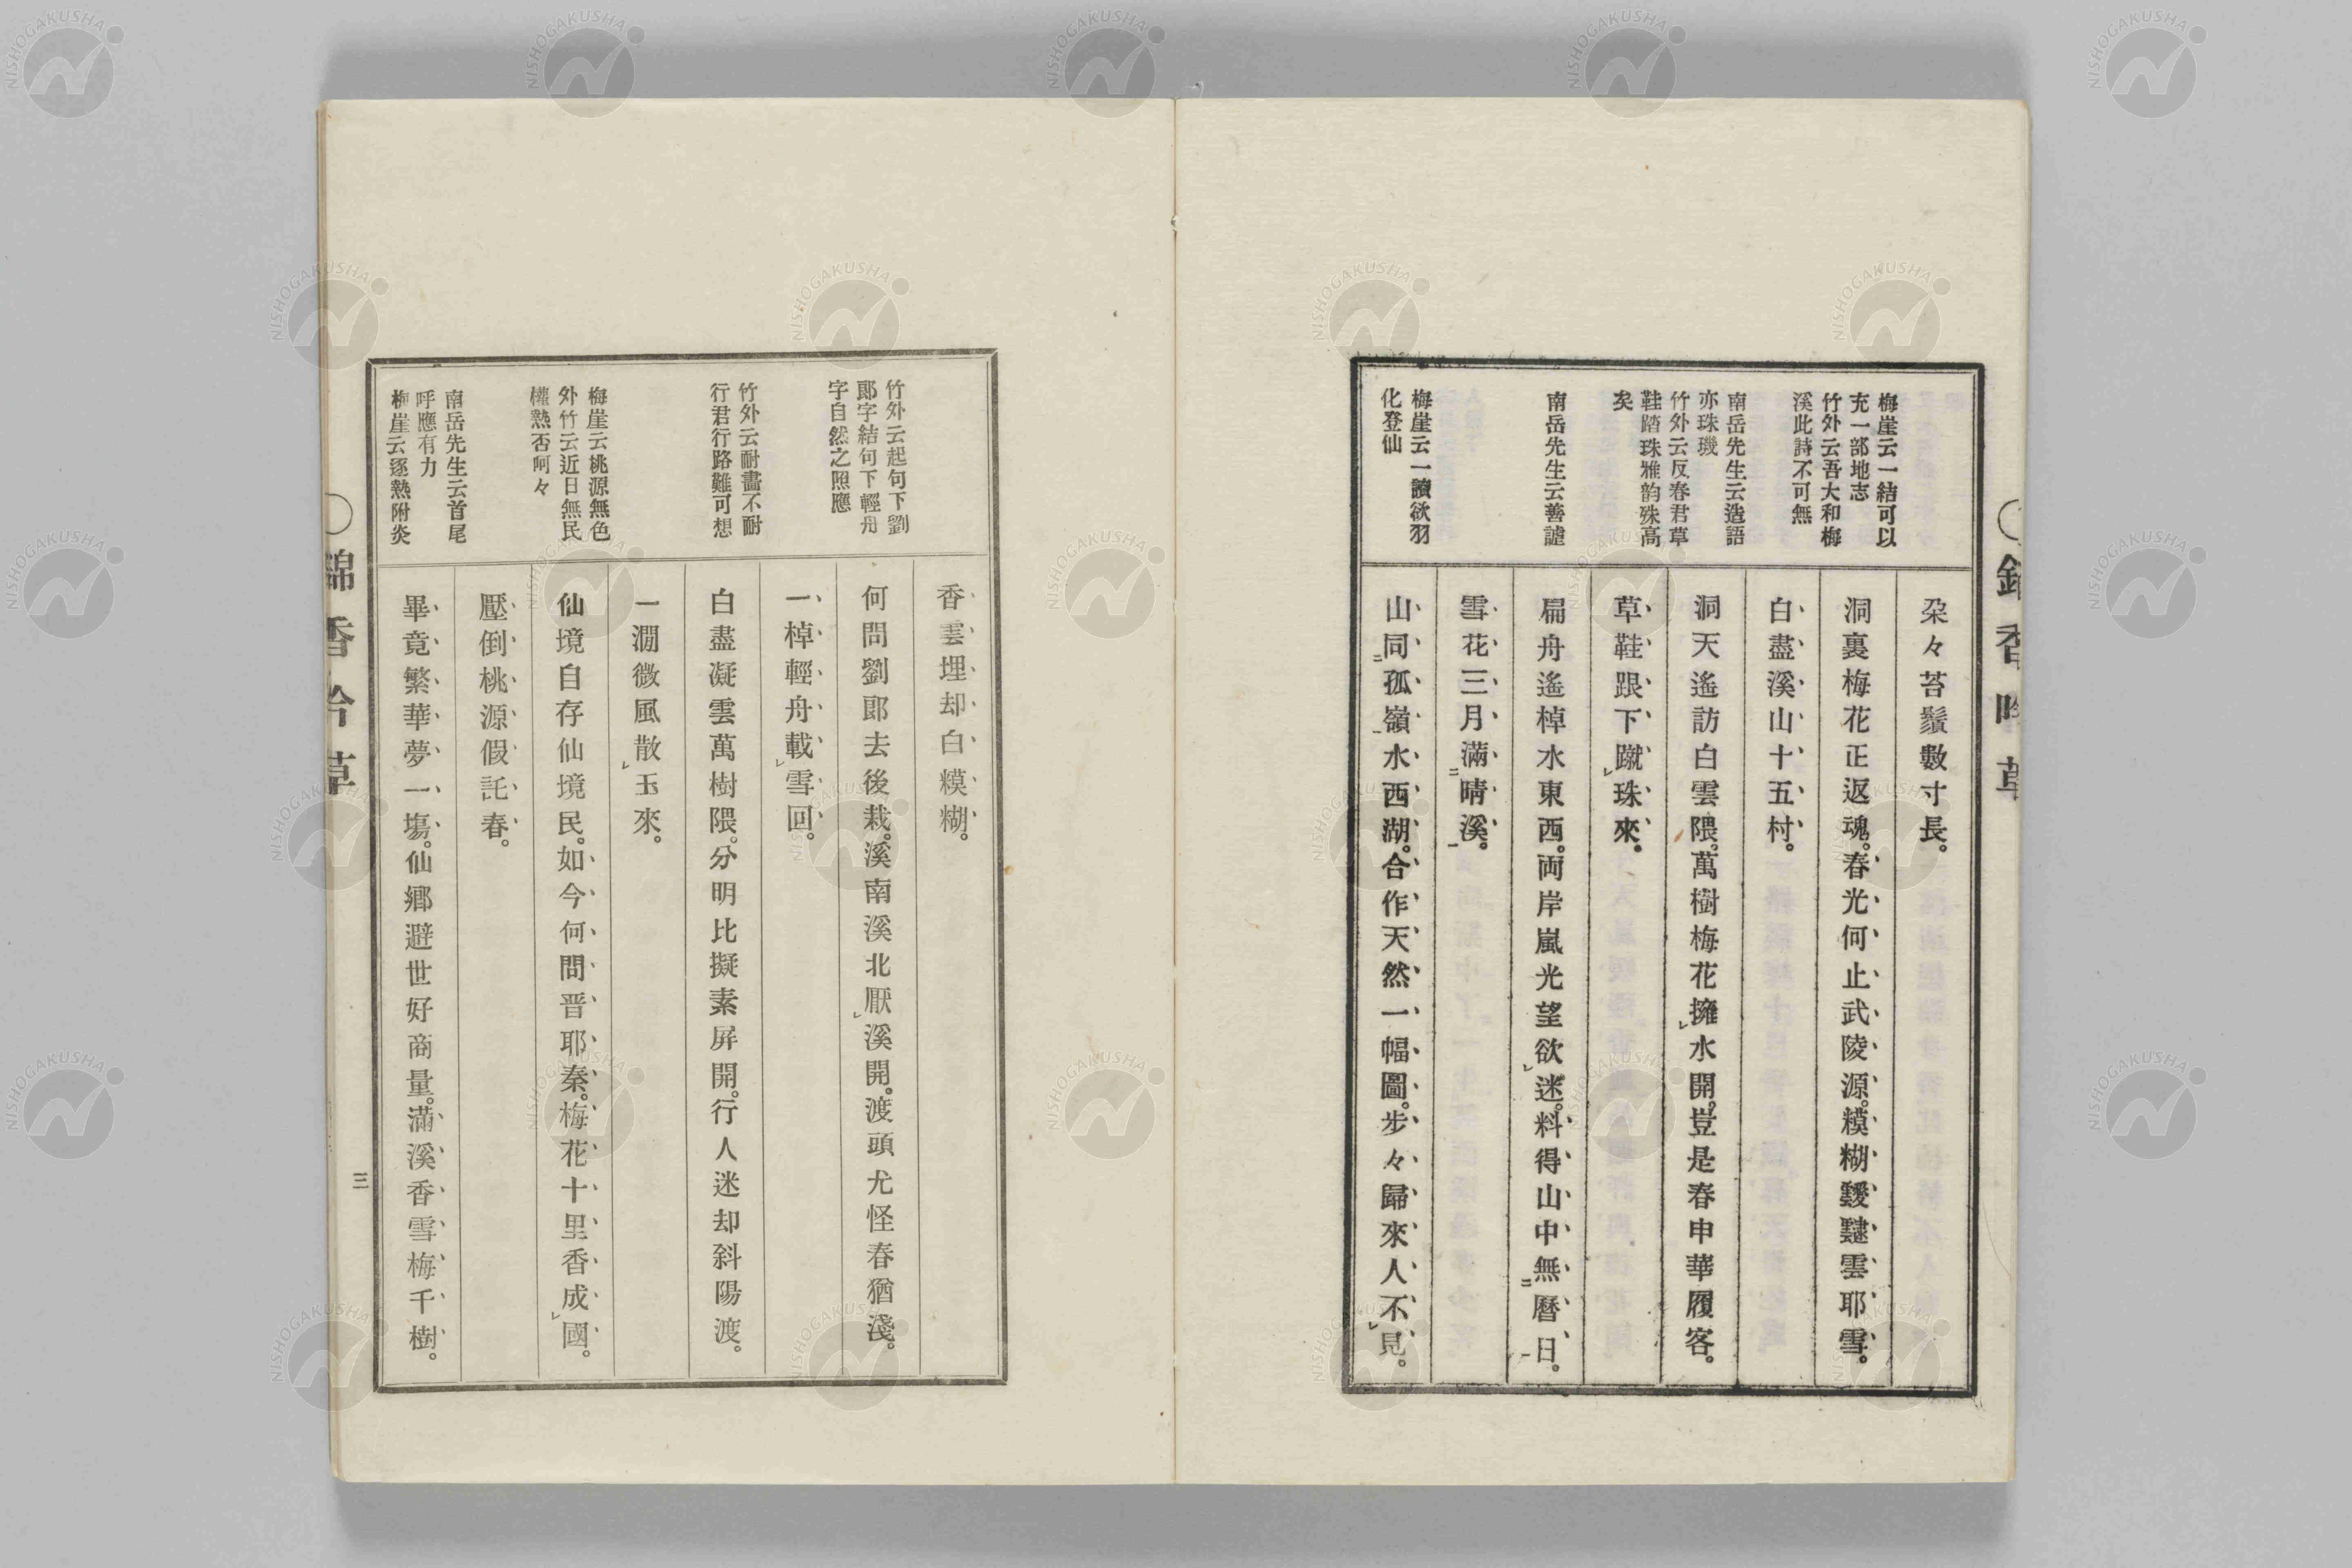 梅崖云一結可以
充一部地志
竹外云吾大和梅
溪此詩不可無
南岳先生云造語
亦珠璣
竹外云反春君草
鞋踏珠雅韵殊高
矣
南岳先生云善謔
梅崖云一讀欲羽
化登仙
朶々苔鬚數寸長。
洞裏梅花正返魂。春光何止武陵源。糢糊靉靆雲耶雪。
白盡溪山十五村。
洞天遙訪白雲隈。萬樹梅花擁水開。豈是春申華履客。
草鞋跟下蹴珠來。
扁舟遙棹水東西。両岸嵐光望欲迷。料得山中無曆日。
雪花三月滿晴溪。
山同孤嶺水西湖。合作天然一幅圖。步々歸來人不見。
竹外云起句下劉
郞字結句下輕舟
字自然之照應
竹外云耐畵不耐
行君行路難可想
梅崖云桃源無色
外竹云近日無民
權熱否呵々
南岳先生云首尾
呼應有力
梅崖云逐熱附炎
香雲埋却白糢糊。
何問劉郞去後栽。溪南溪北厭溪開。渡頭尤怪春猶淺。
一棹輕舟載雪回。
白盡凝雲萬樹隈。分明比擬素屏開。行人迷却斜陽渡。
一澗微風散玉來。
仙境自存仙境民。如今何問晋耶秦。梅花十里香成國。
壓倒桃源假託春。
畢竟繁華夢一塲。仙鄕避世好商量。滿溪香雪梅千樹。
錦香吟草
三
NISHOGAKUSHA